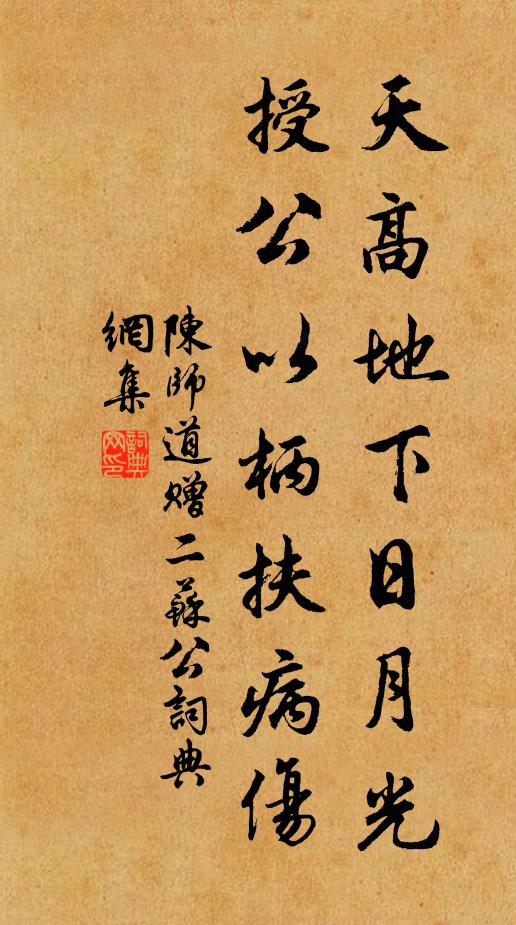 天高地下日月光
授公以柄扶病傷
陳師道贈二蘇公詞典
網集
詞典
网印